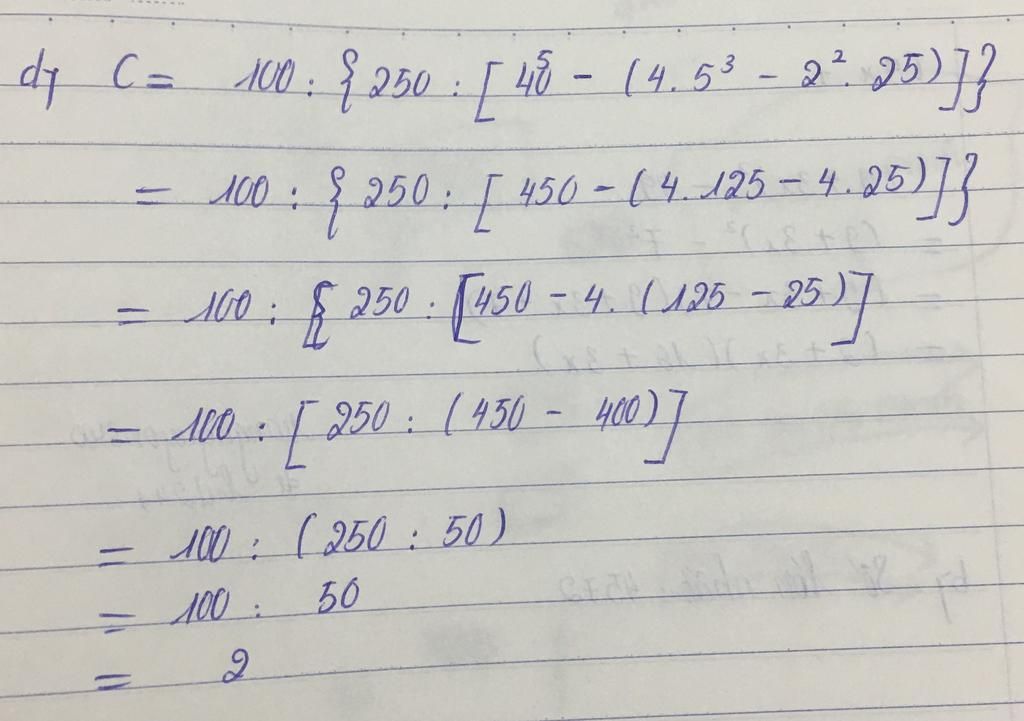 d) C = 100 : { 250 : [ 450 - ( 4 . 5³ - 2² . 25 ) ] }
= 100 : { 250 : [ 450 - ( 4 . 125 - 4 . 25 ) ] }
= 100 : [ 250 : [ 450 - 4 . ( 125 - 25 ) ]
= 100 : [ 250 : ( 450 - 400 ) ]
= 100 : ( 250 : 50 )
= 100 : 50
= 2